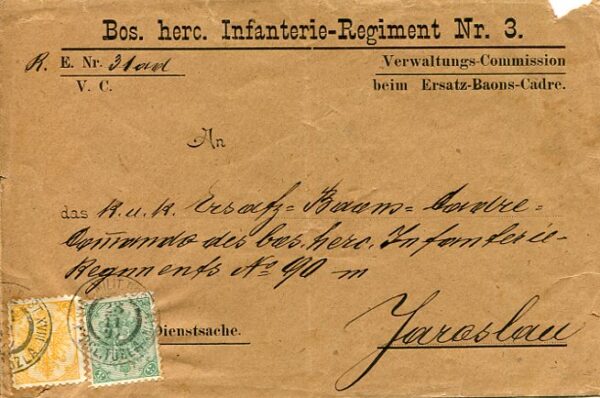 Bos. herc. Infanterie-Regiment Nr. 3.
R. E. Nr. 31 ad
V. C.
Verwaltungs-Commission
beim Ersatz-Baons-Cadre.
An
das k. u. k. Ersatz-Baons-Cadre-
Commando des bos. herc. Infanterie-
Regiments No 90 in
Dienstsache.
Jaroslau